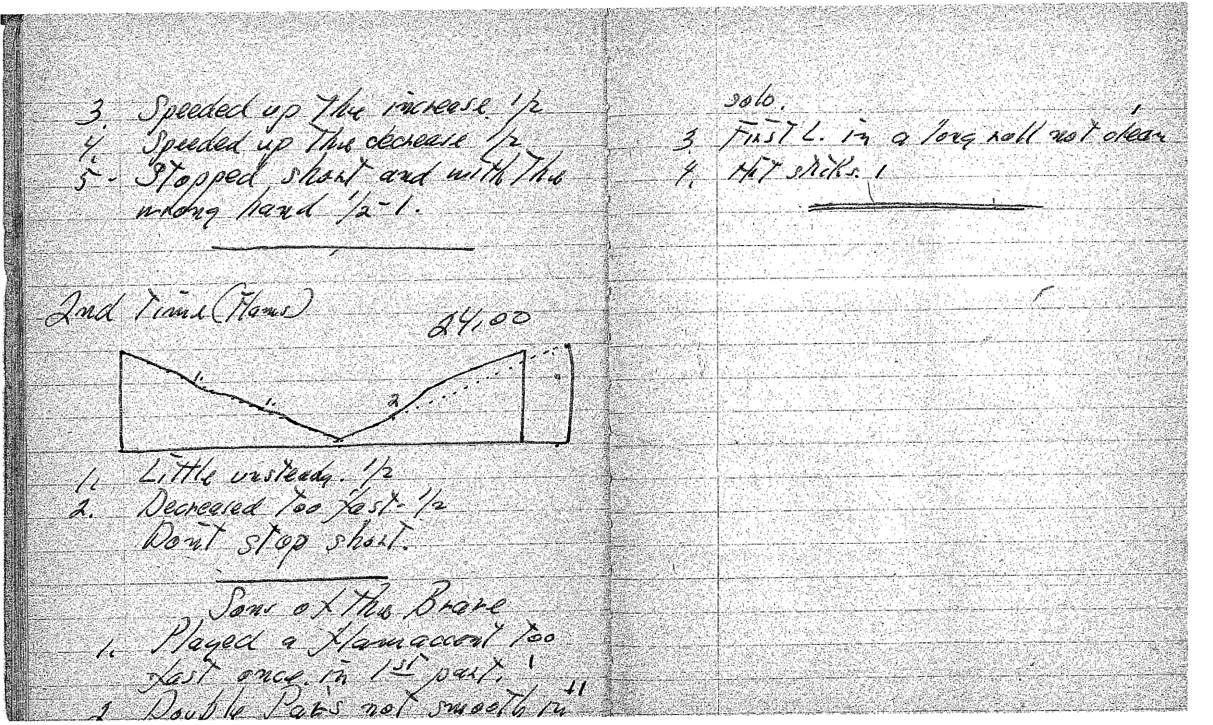 3. Speeded up the increase 1/2
4. Speeded up the decrease 1/2
5- Stopped short and with the
wrong hand 1/2-1.
2nd Time (Flams)
24,00
1.
1.
2
1. Little unsteady. 1/2
2. Decreased too fast-1/2
Don't stop short.
Sons of the Brave
1. Played a flamaccent too
fast once in 1st part. 1
2 Double Pars not smooth in
solo.
3 First L. in a long roll not clean
4. Hit sticks. 1